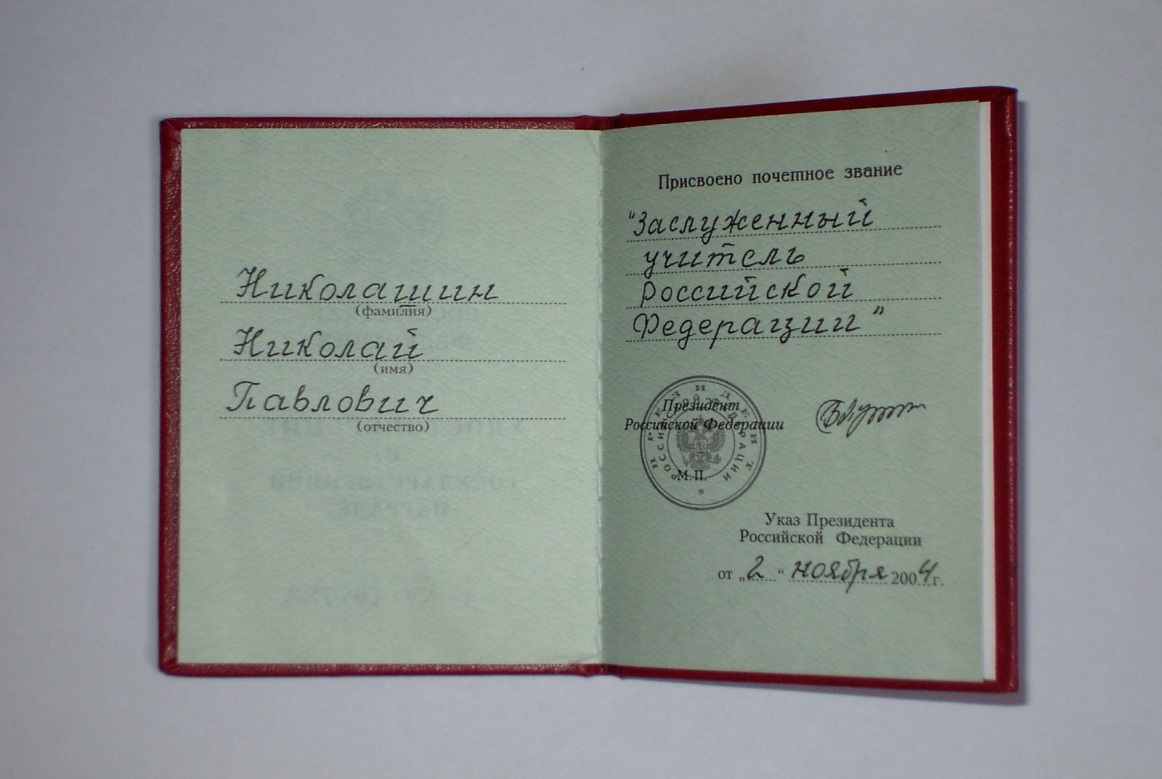 Николашин
(фамилия)
Николай
(имя)
Павлович
(отчество)
Присвоено почетное звание
"Заслуженный
учитель
Российской
Федерации"
Президент
Российской Федерации
М.П.
Указ Президента
Российской Федерации
от „2" ноября 2004г.